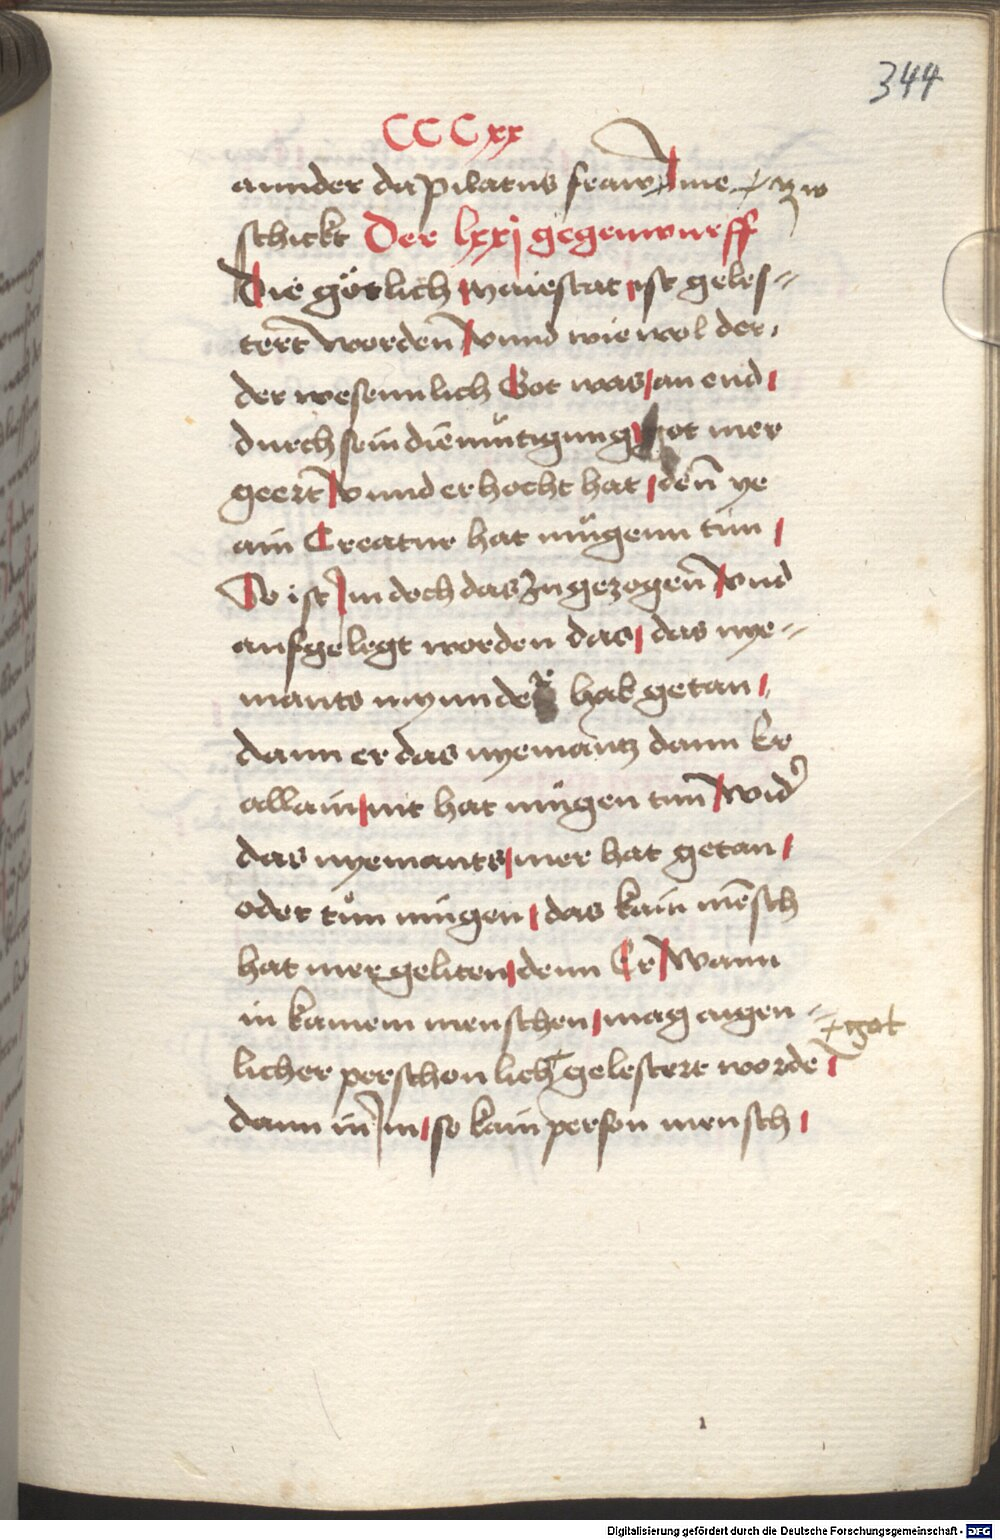 344
CCCxx
annder da pilatus fraw Jme + zw
schickt Der lxxj gegenwurff
Die götlich mayestat ist geles-
tert worden vnnd wie wol der
der wesennlich Got was an end
durch sein diemütigung got mer
geert vnnd erhocht hat denn ye
ain Creatur hat mügenn tun
So ist Jm doch das Zugezogen vnd
aufgelegt worden das das nye-
mants mynnder hab getan
dann er das nyemantz dann Er
allain nit hat mügen tun wider
das nyemants mer hat getan
oder tůn mügen das kain mēsch
hat mer geliten denn Er Wann
in kainem menschen mag aigen-
+ got
licher perschonlich gelestert worde
dann in Jm so kain person mensch
Digitalisierung gefördert durch die Deutsche Forschungsgemeinschaft - DFG